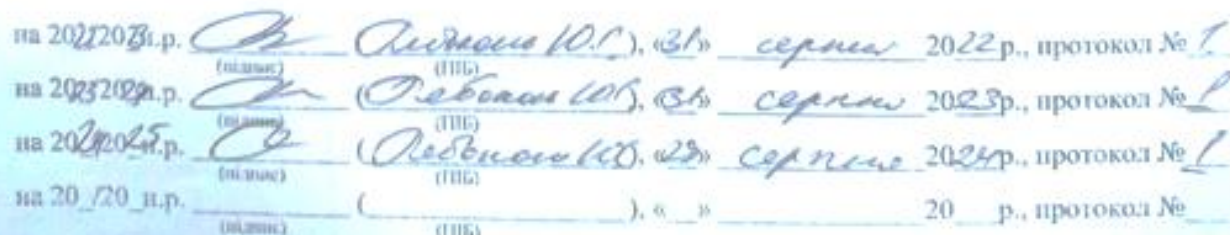 на 2022/2023н.р. Ю.Г.), «31» серпня 2022р., протокол № 1
(підпис) (ПІБ)
на 2023/2024н.р. ( Ю.Г.), «31» серпня 2023р., протокол № 1
(підпис) (ПІБ)
на 2024/2025н.р. ( ), «29» серпня 2024р., протокол № 1
(підпис) (ПІБ)
на 20_/20_н.р. ( ), « » 20 р., протокол №
(підпис) (ПІБ)